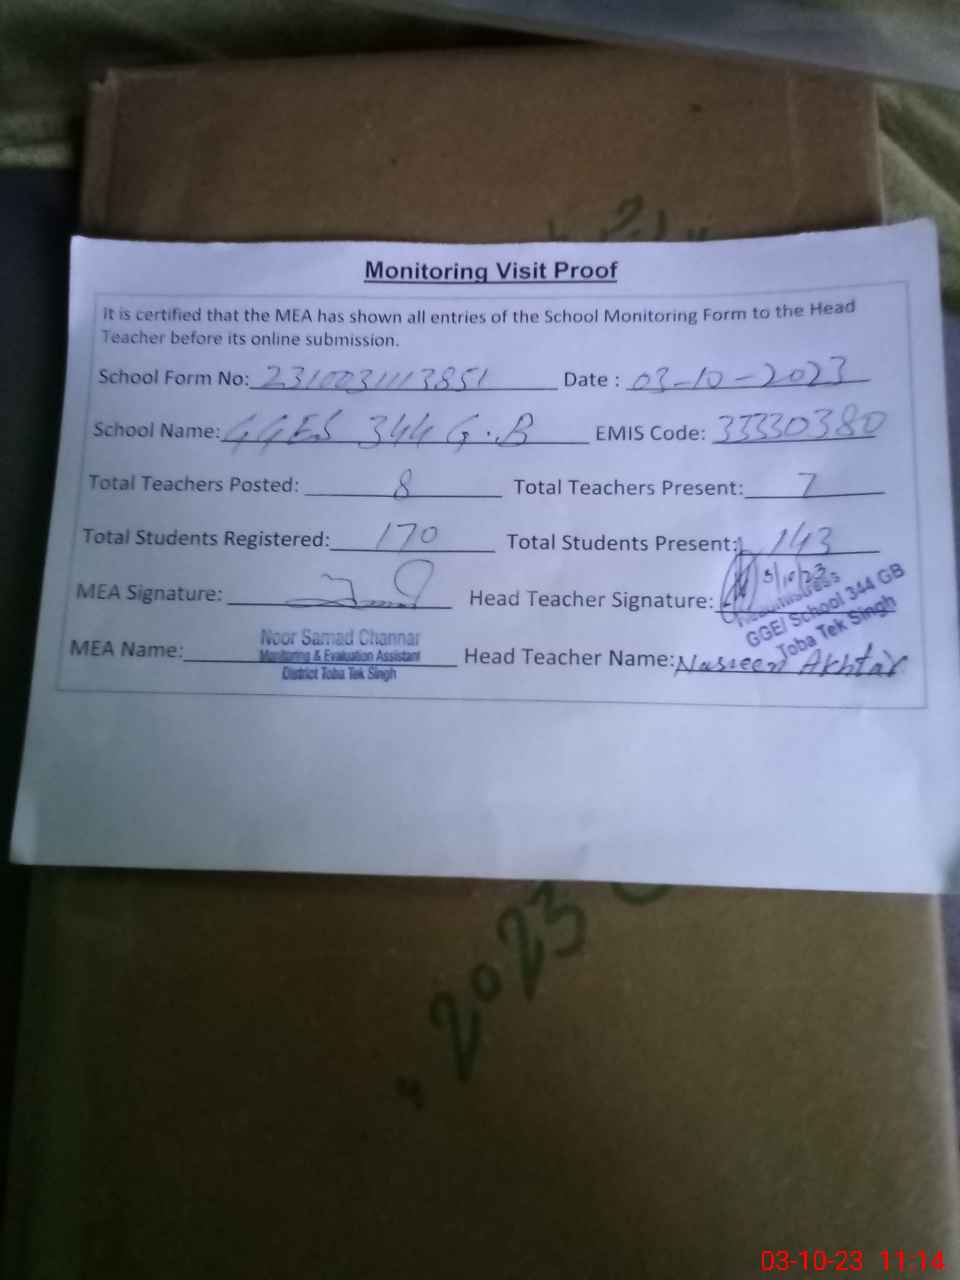 Monitoring Visit Proof
It is certified that the MEA has shown all entries of the School Monitoring Form to the Head
Teacher before its online submission.
School Form No: 2310031113851 Date : 03-10-2023
School Name: GGES 344 G.B EMIS Code: 33330380
Total Teachers Posted: 8 Total Teachers Present: 7
Total Students Registered: 170 Total Students Present: 143
MEA Signature: Head Teacher Signature:
3/10/23
Headmistress
GGE/ School 344 GB
Toba Tek Singh
MEA Name: Noor Samad Channar Head Teacher Name: Nasreen Akhtar
Monitoring & Evaluation Assistant
District Toba Tek Singh
2023
03-10-23 11:14